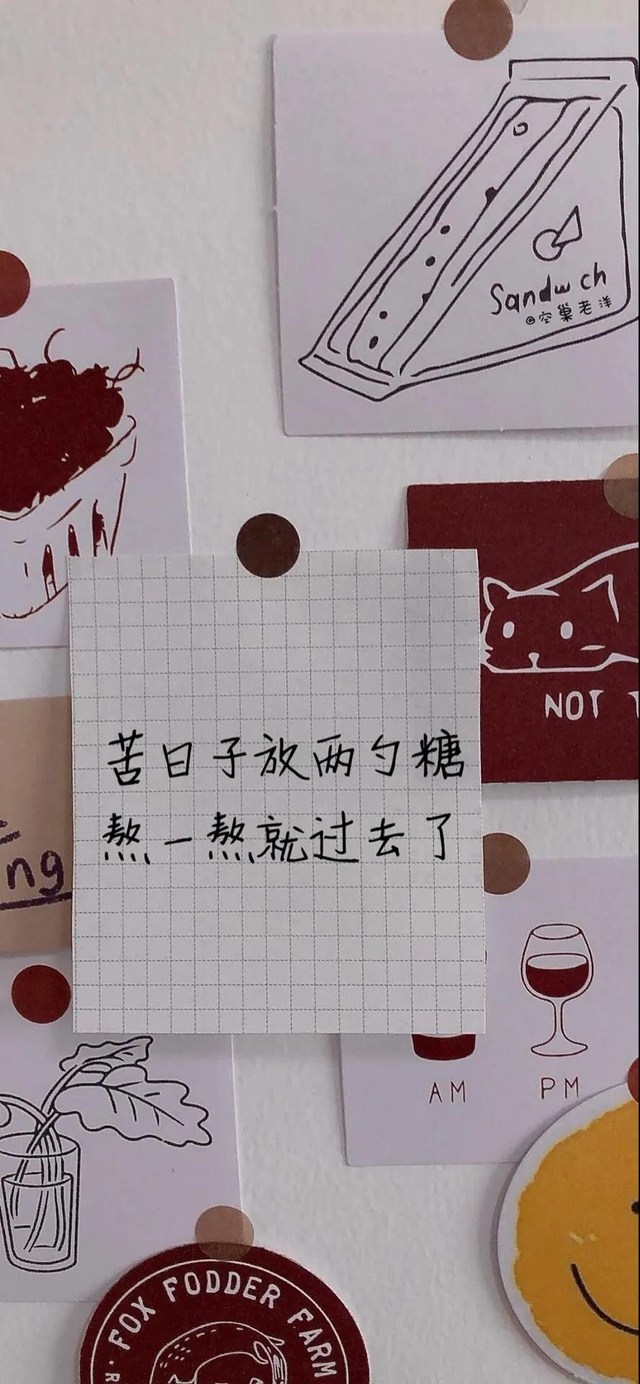 Sandwch
@空巢老洋
NOT
苦日子放两勺糖
熬一熬就过去了
ng
AM PM
FOX FODDER FARM